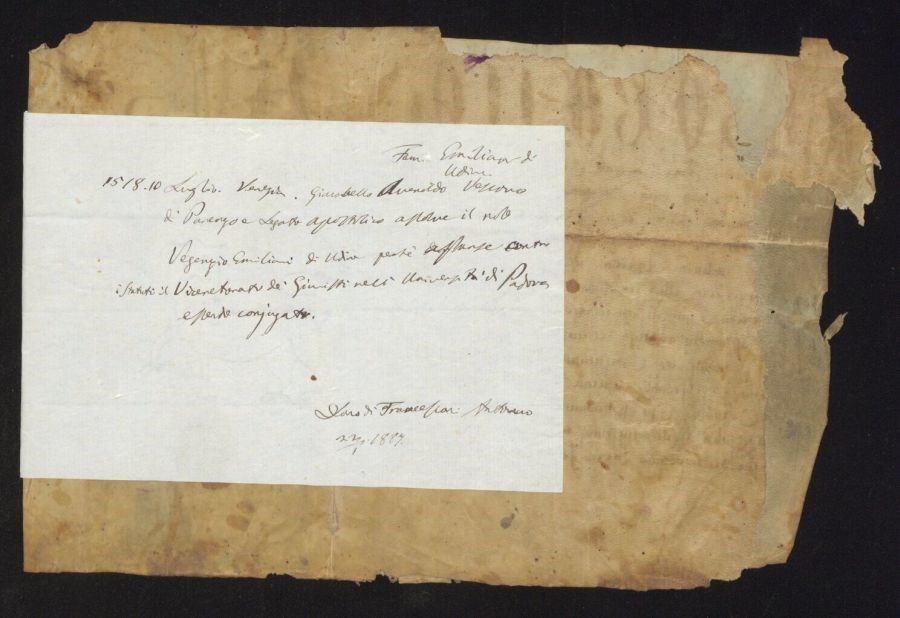 Fam. Emiliani di
Udine
1518.10 Luglio. Venezia. Averoldo Vescovo
di Parenzo e Legato apostolico assolve il nob
Emiliani di Udine perchè contro
i statuti il Vicerettorato de' Giuristi nell' Università di Padova
essendo conjugato.
Dono di Franceschi Antonio
1887.